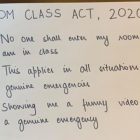 OM CLASS ACT, 2020
No one shall enter my room
am in class
This applies in all situations
genuine emergencies
Showing me a funny video
a genuine emergency